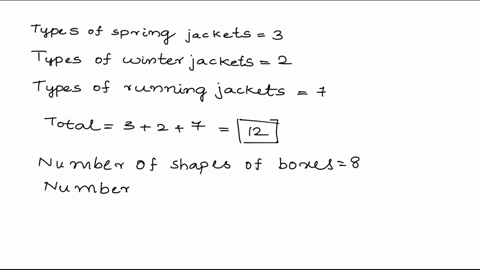 Types of spring jackets = 3
Types of winter jackets = 2
Types of running jackets = 7
Total = 3 + 2 + 7 = 12
Number of shapes of boxes = 8
Number